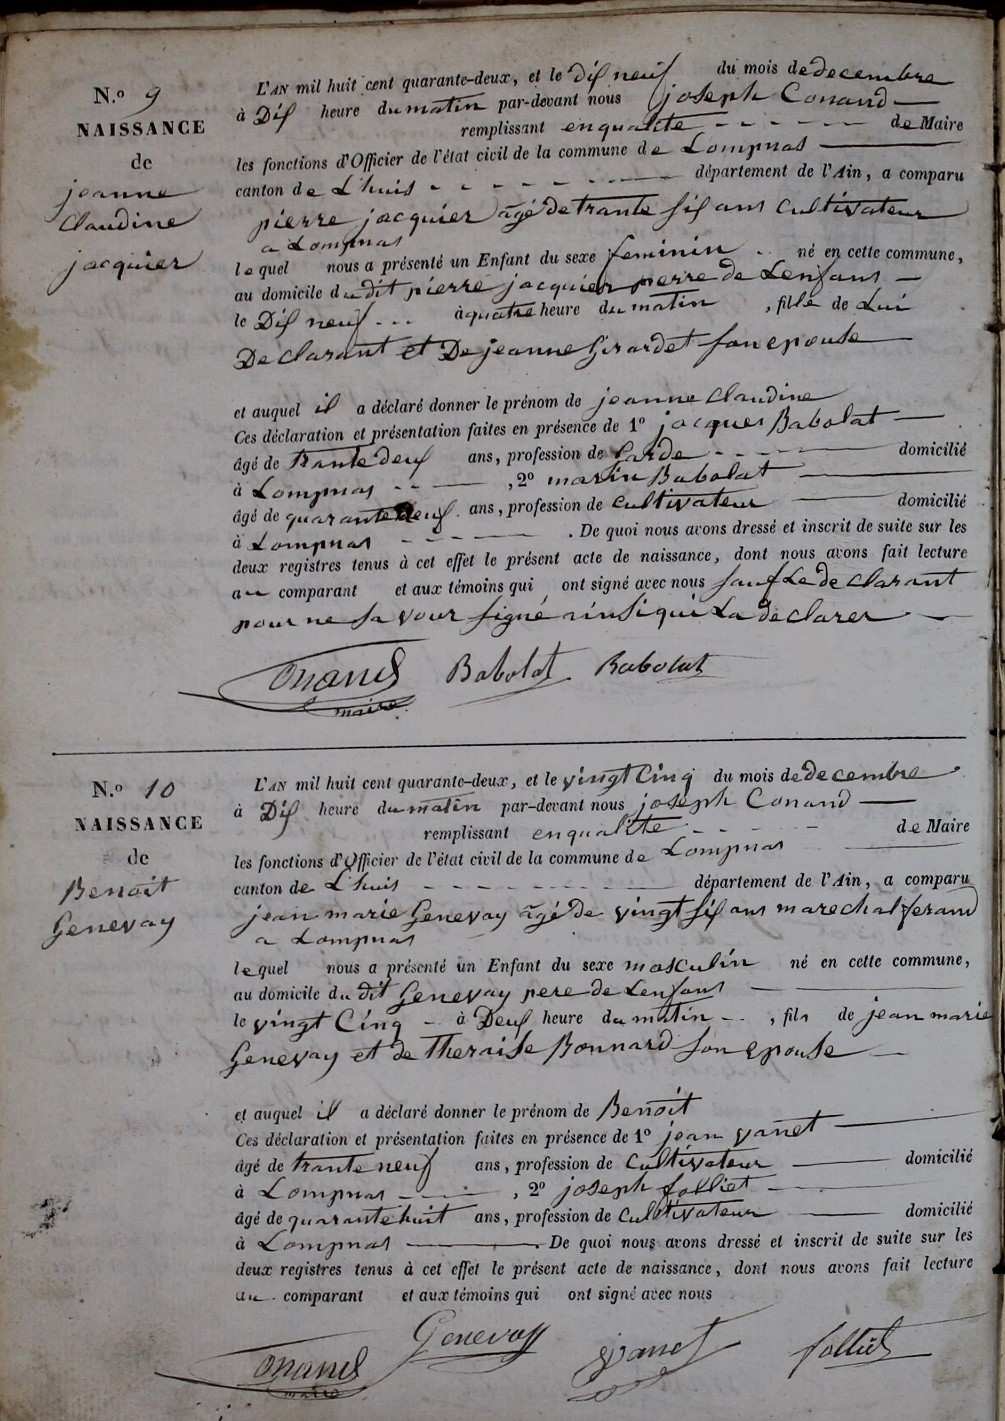 N.º 9
NAISSANCE
de
jeanne
Claudine
jacquier
L'AN mil huit cent quarante-deux, et le Dix neuf du mois de decembre
à Dix heure du matin par-devant nous joseph Conand
remplissant en qualite de Maire
les fonctions d'Officier de l'état civil de la commune de Lompnas
canton de L'huis département de l'Ain, a comparu
pierre jacquier âgé de trante six ans cultivateur
a Lompnas
lequel nous a présenté un Enfant du sexe feminin né en cette commune,
au domicile du dit pierre jacquier perre de Lenfans
le Dix neuf à quatre heure du matin, fille de Lui
Declarant et De jeanne Girardet son epouse
et auquel il a déclaré donner le prénom de jeanne Claudine
Ces déclaration et présentation faites en présence de 1º jacques Babolat
âgé de trante deux ans, profession de Garde domicilié
à Lompnas, 2º marin Babolat
âgé de quarante deux ans, profession de cultivateur domicilié
à Lompnas. De quoi nous avons dressé et inscrit de suite sur les
deux registres tenus à cet effet le présent acte de naissance, dont nous avons fait lecture
au comparant et aux témoins qui ont signé avec nous sauf Le declarant
pour ne savoir signé ainsi qui La declarer
Conand Babolat Babolat
maire
N.º 10
NAISSANCE
de
Benoit
Genevay
L'AN mil huit cent quarante-deux, et le vingt Cinq du mois de decembre
à Dix heure du matin par-devant nous joseph Conand
remplissant en qualite de Maire
les fonctions d'Officier de l'état civil de la commune de Lompnas
canton de L'huis département de l'Ain, a comparu
jean marie Genevay âgé de vingt six ans marechal ferand
a Lompnas
lequel nous a présenté un Enfant du sexe masculin né en cette commune,
au domicile du dit Genevay pere de Lenfans
le vingt Cinq à Deux heure du matin, fils de jean marie
Genevay et de Theraise Bonnard son epouse
et auquel il a déclaré donner le prénom de Benoit
Ces déclaration et présentation faites en présence de 1º jean vanet
âgé de trante neuf ans, profession de cultivateur domicilié
à Lompnas, 2º joseph folliet
âgé de quarante huit ans, profession de cultivateur domicilié
à Lompnas. De quoi nous avons dressé et inscrit de suite sur les
deux registres tenus à cet effet le présent acte de naissance, dont nous avons fait lecture
au comparant et aux témoins qui ont signé avec nous
Conand Genevay jvanet folliet
maire